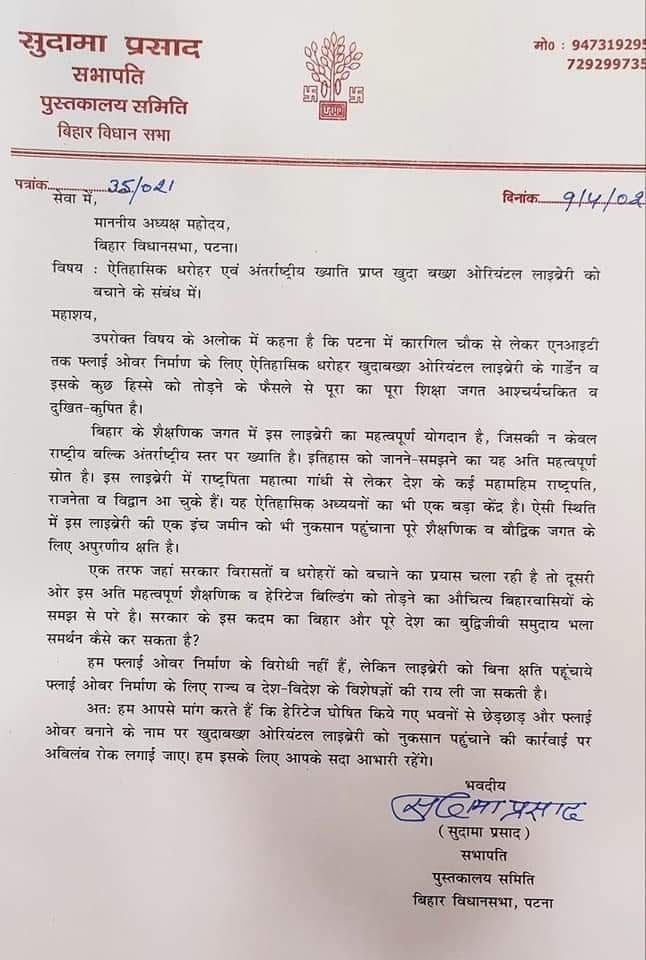 सुदामा प्रसाद
सभापति
पुस्तकालय समिति
बिहार विधान सभा
मो० : 947319295
729299735
पत्रांक 35/021
दिनांक 9/4/02
सेवा में,
माननीय अध्यक्ष महोदय,
बिहार विधानसभा, पटना।
विषय : ऐतिहासिक धरोहर एवं अंतर्राष्ट्रीय ख्याति प्राप्त खुदा बख्श ओरियंटल लाइब्रेरी को
बचाने के संबंध में।
महाशय,
उपरोक्त विषय के अलोक में कहना है कि पटना में कारगिल चौक से लेकर एनआइटी
तक फ्लाई ओवर निर्माण के लिए ऐतिहासिक धरोहर खुदाबख्श ओरियंटल लाइब्रेरी के गार्डेन व
इसके कुछ हिस्से को तोड़ने के फैसले से पूरा का पूरा शिक्षा जगत आश्चर्यचकित व
दुखित-कुपित है।
बिहार के शैक्षणिक जगत में इस लाइब्रेरी का महत्वपूर्ण योगदान है, जिसकी न केवल
राष्ट्रीय बल्कि अंतर्राष्ट्रीय स्तर पर ख्याति है। इतिहास को जानने-समझने का यह अति महत्वपूर्ण
स्रोत है। इस लाइब्रेरी में राष्ट्रपिता महात्मा गांधी से लेकर देश के कई महामहिम राष्ट्रपति,
राजनेता व विद्वान आ चुके हैं। यह ऐतिहासिक अध्ययनों का भी एक बड़ा केंद्र है। ऐसी स्थिति
में इस लाइब्रेरी की एक इंच जमीन को भी नुकसान पहुंचाना पूरे शैक्षणिक व बौद्विक जगत के
लिए अपुरणीय क्षति है।
एक तरफ जहां सरकार विरासतों व धरोहरों को बचाने का प्रयास चला रही है तो दूसरी
ओर इस अति महत्वपूर्ण शैक्षणिक व हेरिटेज बिल्डिंग को तोड़ने का औचित्य बिहारवासियों के
समझ से परे है। सरकार के इस कदम का बिहार और पूरे देश का बुद्विजीवी समुदाय भला
समर्थन कैसे कर सकता है?
हम फ्लाई ओवर निर्माण के विरोधी नहीं हैं, लेकिन लाइब्रेरी को बिना क्षति पहूंचाये
फ्लाई ओवर निर्माण के लिए राज्य व देश-विदेश के विशेषज्ञों की राय ली जा सकती है।
अतः हम आपसे मांग करते हैं कि हेरिटेज घोषित किये गए भवनों से छेड़छाड़ और फ्लाई
ओवर बनाने के नाम पर खुदाबख्श ओरियंटल लाइब्रेरी को नुकसान पहुंचाने की कार्रवाई पर
अविलंब रोक लगाई जाए। हम इसके लिए आपके सदा आभारी रहेंगे।
भवदीय
सुदामा प्रसाद
( सुदामा प्रसाद )
सभापति
पुस्तकालय समिति
बिहार विधानसभा, पटना